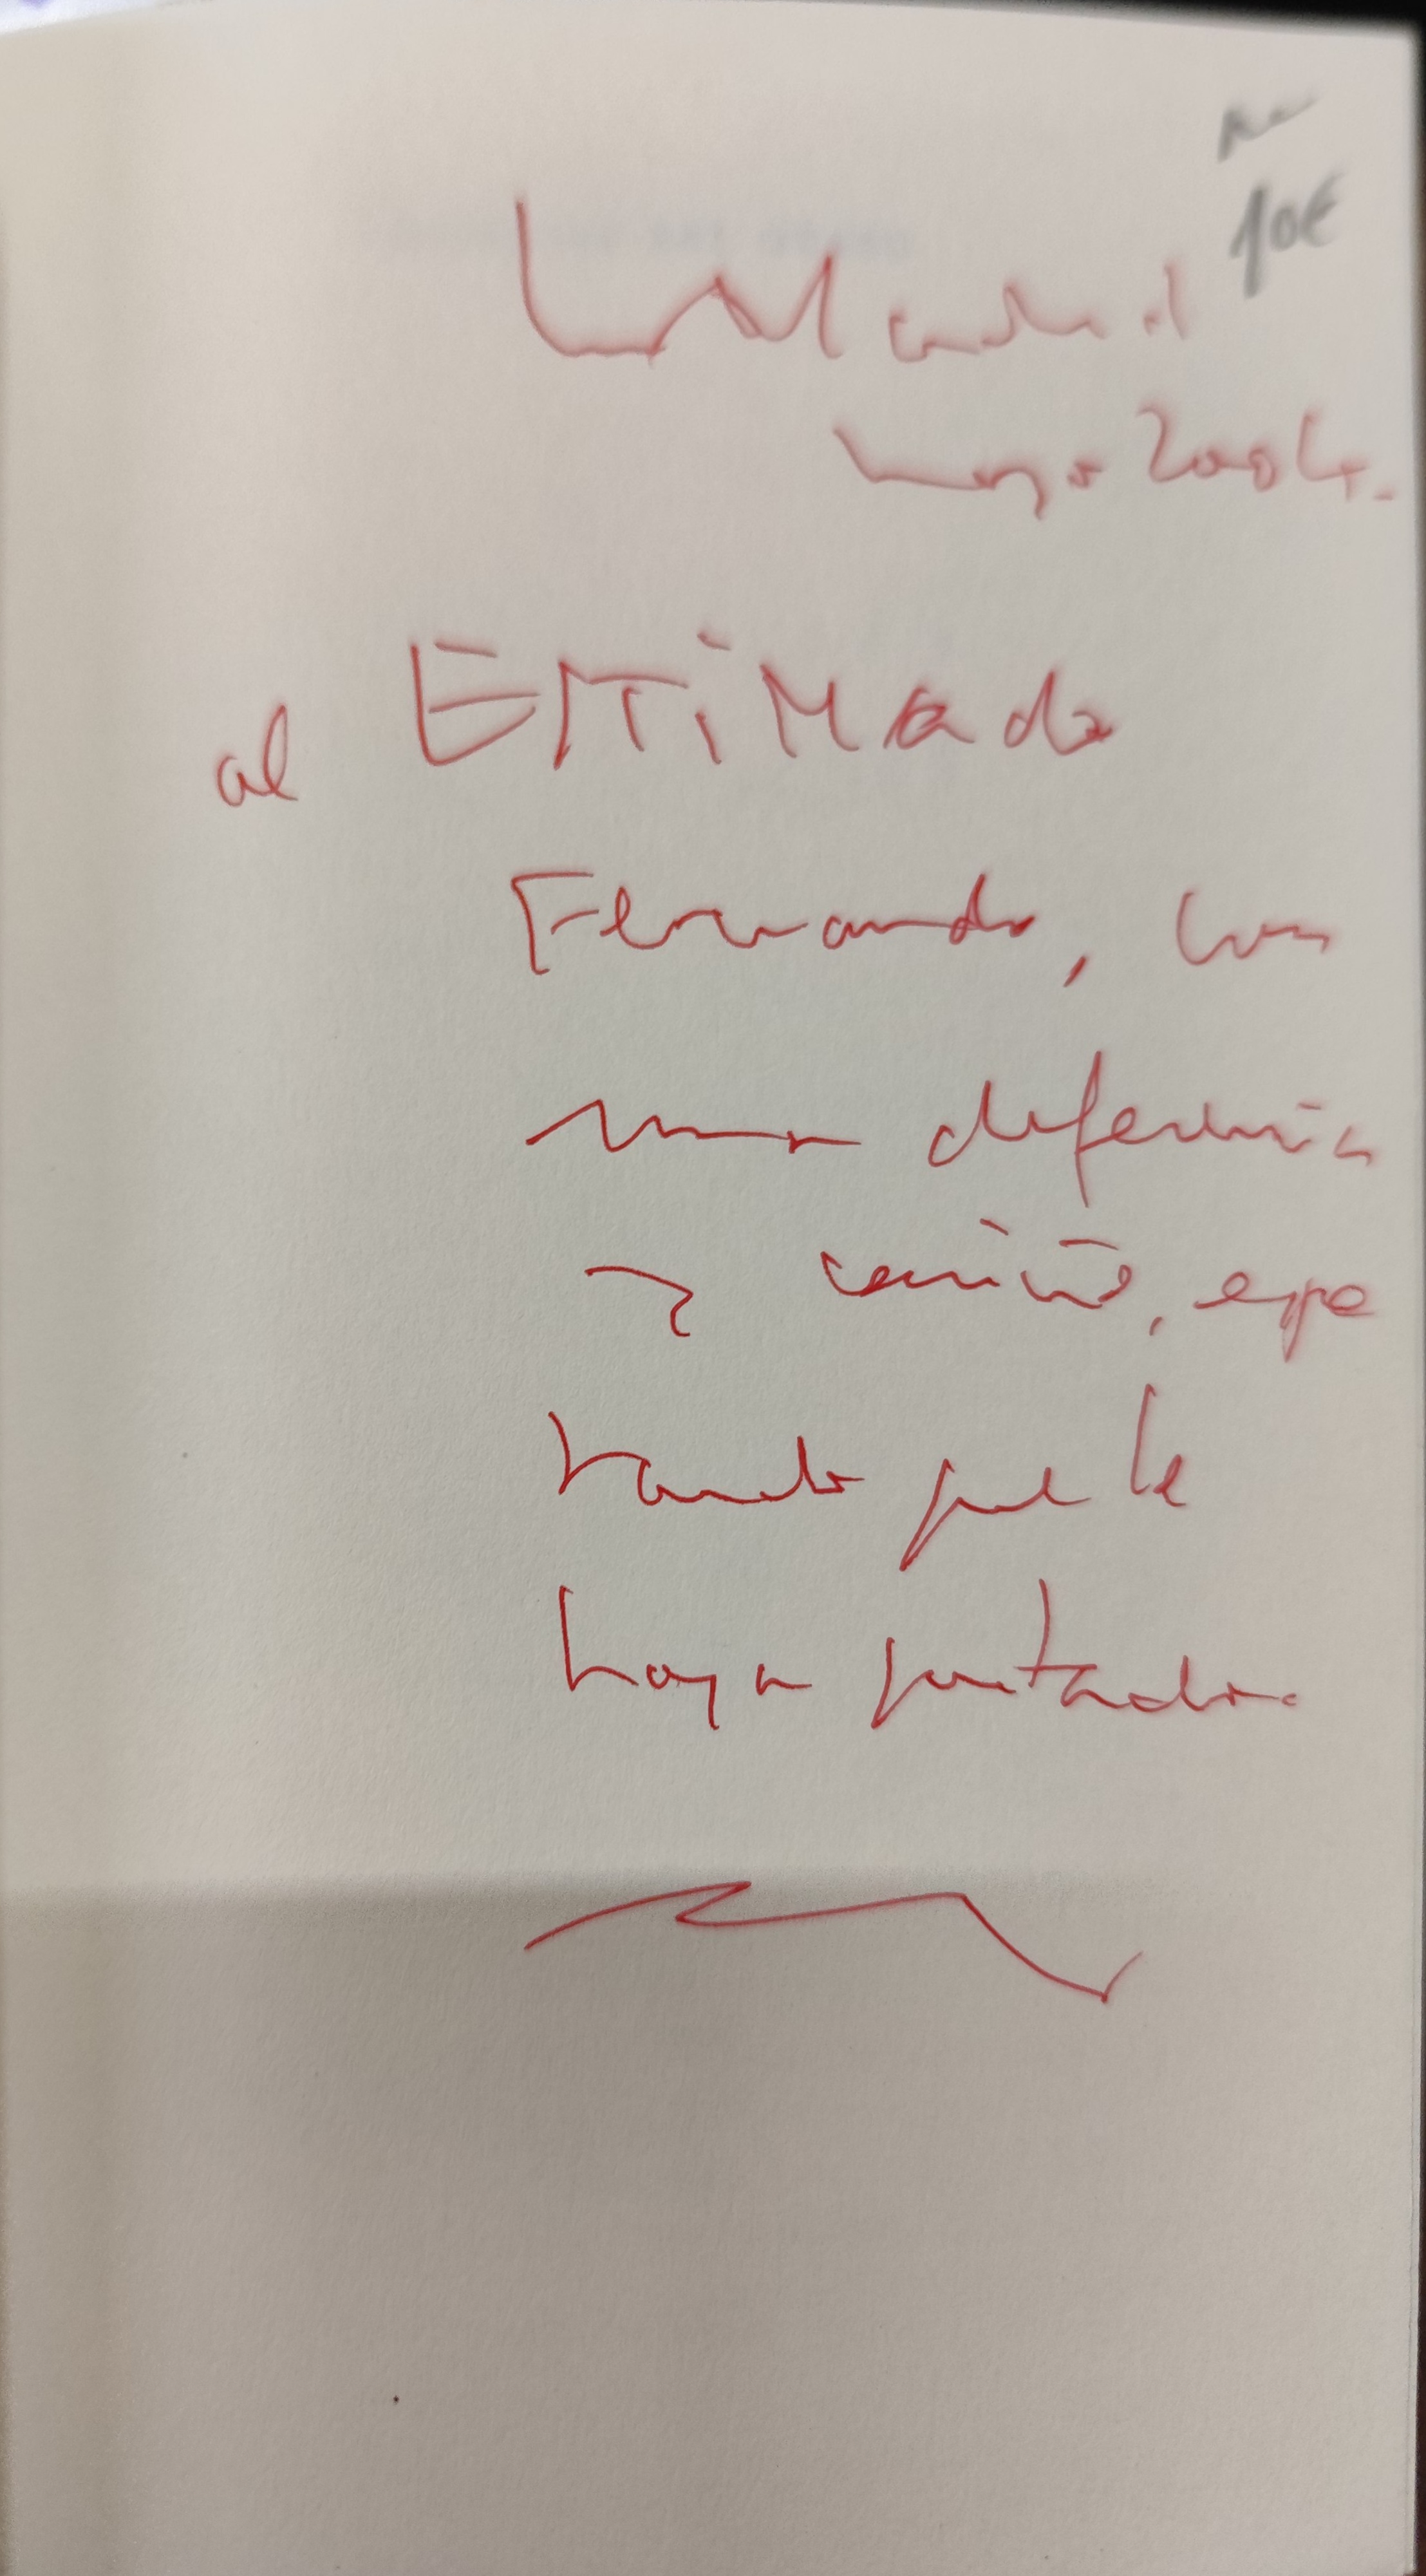 10€
Madrid
mayo 2004.
al ESTIMADO
Fernando, con
mi deferencia
y cariño, espe
rando que le
haya gustado.